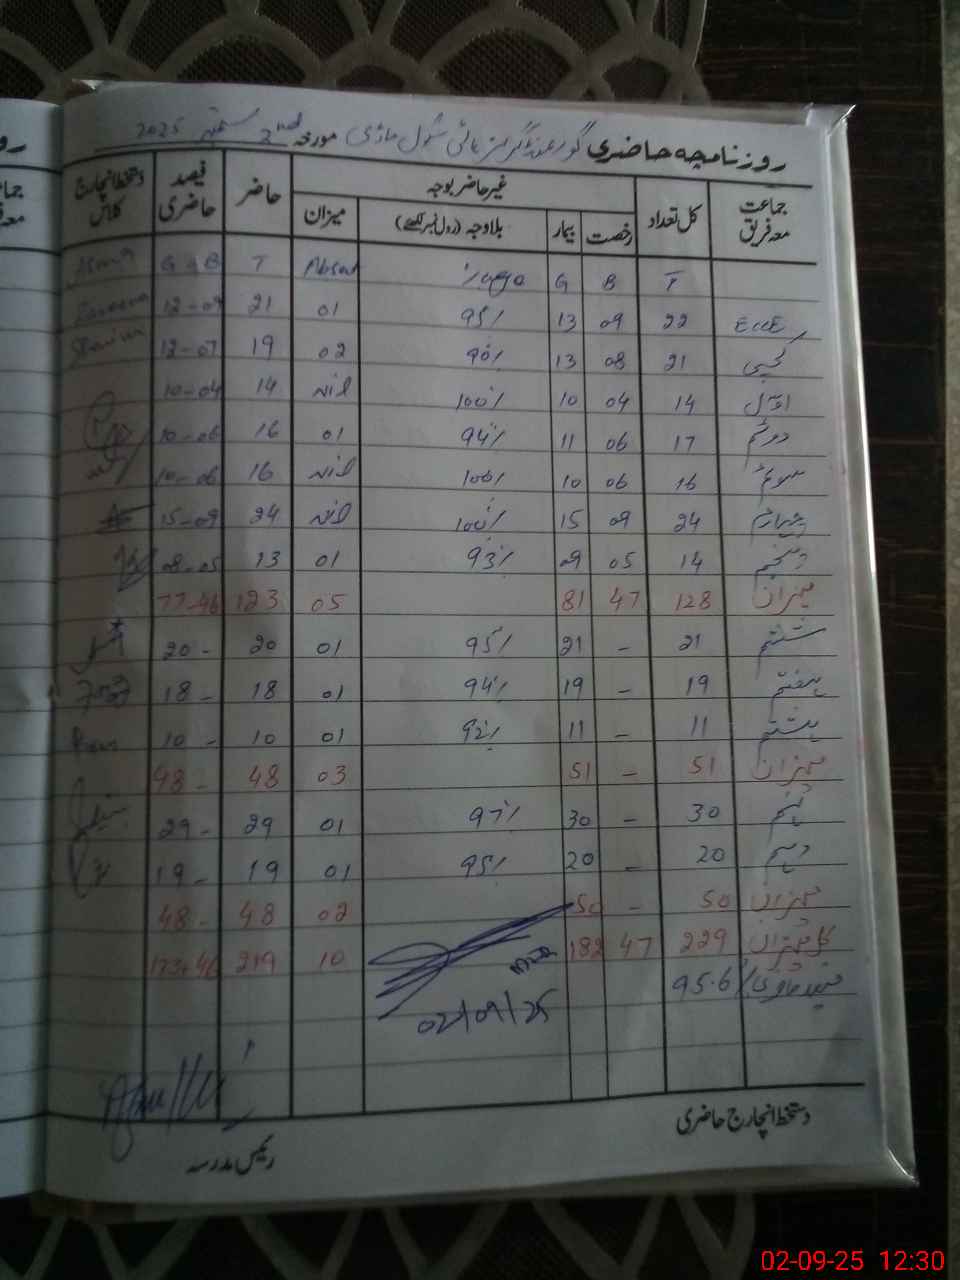 روزنامچہ حاضری گورنمنٹ گرلز ہائی سکول ماڑی مورخہ 2nd ستمبر 2025
جماعت معہ فریق کل تعداد غیر حاضر بوجہ حاضر فیصد حاضری دستخط انچارج کلاس
رخصت بیمار بلاوجہ (رول نمبر لکھئے) میزان
T B G %age Absent T G & B
ECCE 22 09 13 95% 01 21 12-09
کچی 21 08 13 90% 02 19 12-07
اول 14 04 10 100% Nil 14 10-04
دوئم 17 06 11 94% 01 16 10-06
سوئم 16 06 10 100% Nil 16 10-06
چہارم 24 09 15 100% Nil 24 15-09
پنجم 14 05 09 93% 01 13 08-05
میزان 128 47 81 05 123 77-46
ششم 21 - 21 95% 01 20 20 -
ہفتم 19 - 19 94% 01 18 18 -
ہشتم 11 - 11 92% 01 10 10 -
میزان 51 - 51 03 48 48 -
نہم 30 - 30 97% 01 29 29 -
دہم 20 - 20 95% 01 19 19 -
میزان 50 - 50 02 48 48 -
کل میزان 229 47 182 10 219 173+46
فیصد حاضری % 95.6
02/09/25
دستخط انچارج حاضری
رئیس مدرسہ
02-09-25 12:30